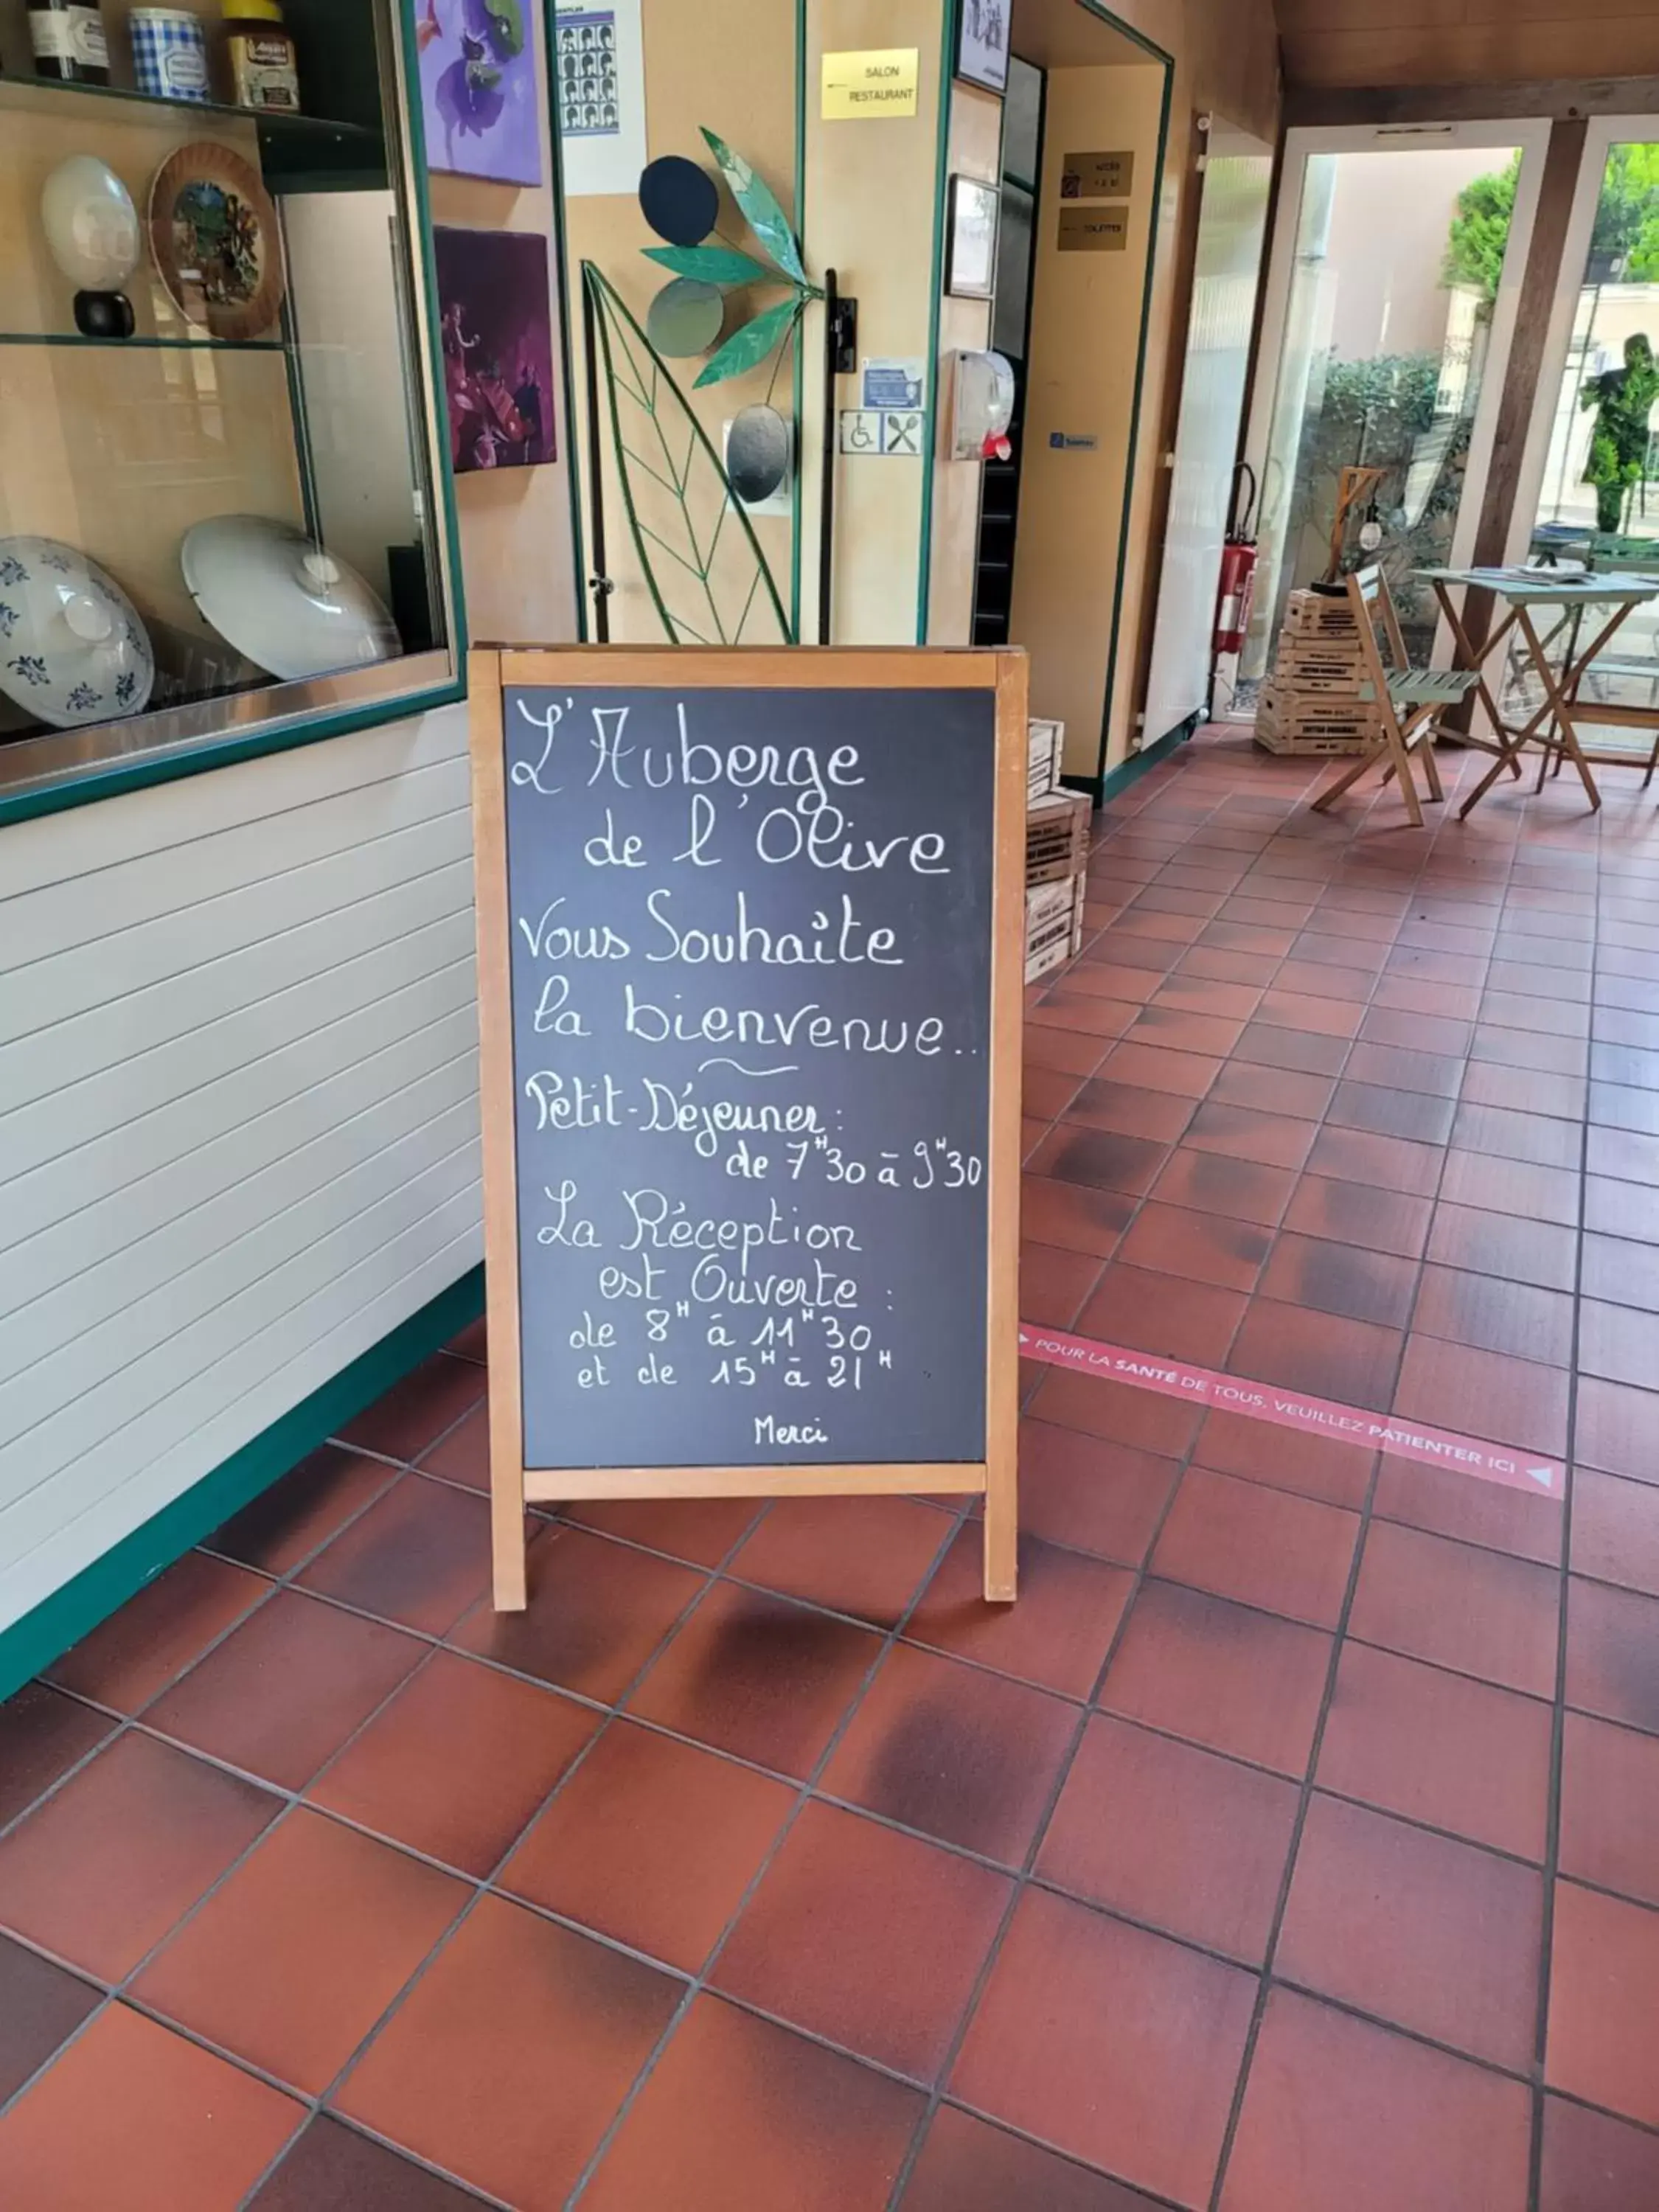 SALON
RESTAURANT
ACCÈS
TOILETTES
L'Auberge
de l'Olive
Vous Souhaîte
la bienvenue..
Petit-Déjeuner :
de 7H30 à 9H30
La Réception
est Ouverte :
de 8H à 11H30
et de 15H à 21H
Merci
POUR LA SANTÉ DE TOUS, VEUILLEZ PATIENTER ICI